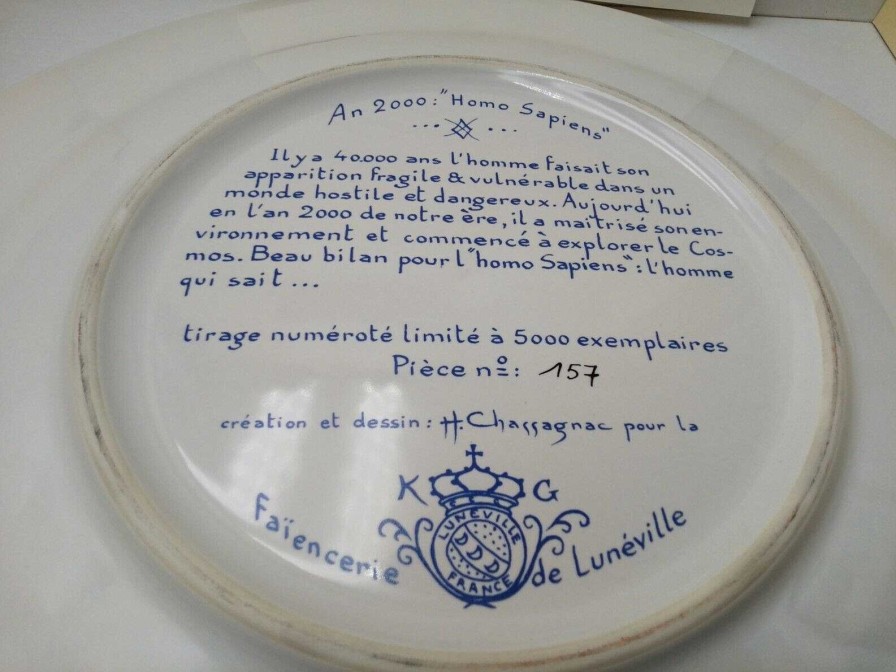 An 2000: "Homo Sapiens"
Il y a 40.000 ans l'homme faisait son
apparition fragile & vulnérable dans un
monde hostile et dangereux. Aujourd'hui
en l'an 2000 de notre ère, il a maîtrisé son en-
vironnement et commencé à explorer le Cos-
mos. Beau bilan pour l'"homo Sapiens": l'homme
qui sait ...
tirage numéroté limité à 5000 exemplaires
Pièce nº: 157
création et dessin: H. Chassagnac pour la
K G
LUNÉVILLE
DDD
FRANCE
Faïencerie de Lunéville